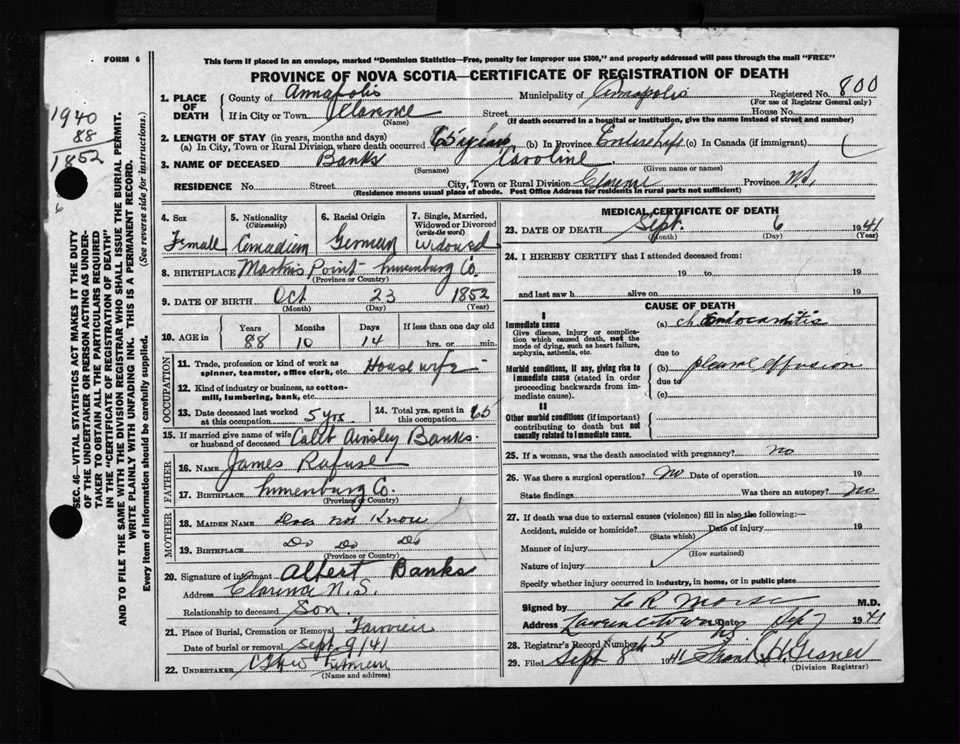 FORM 6
This form if placed in an envelope, marked "Dominion Statistics—Free, penalty for improper use $300," and properly addressed will pass through the mail "FREE"
PROVINCE OF NOVA SCOTIA—CERTIFICATE OF REGISTRATION OF DEATH
1940
88
1852
6
SEC. 46—VITAL STATISTICS ACT MAKES IT THE DUTY
OF THE UNDERTAKER OR PERSON ACTING AS UNDER-
TAKER TO OBTAIN ALL THE PARTICULARS REQUIRED
IN THE "CERTIFICATE OF REGISTRATION OF DEATH"
AND TO FILE THE SAME WITH THE DIVISION REGISTRAR WHO SHALL ISSUE THE BURIAL PERMIT.
WRITE PLAINLY WITH UNFADING INK. THIS IS A PERMANENT RECORD.
Every item of Information should be carefully supplied. (See reverse side for instructions.)
1. PLACE OF DEATH
County of Annapolis Municipality of Annapolis Registered No. 800
(For use of Registrar General only)
If in City or Town Clarence Street House No.
(Name) (If death occurred in a hospital or institution, give the name instead of street and number)
2. LENGTH OF STAY (in years, months and days)
(a) In City, Town or Rural Division where death occurred 65 years (b) In Province Entire Life (c) In Canada (if immigrant)
3. NAME OF DECEASED Banks Caroline
(Surname) (Given name or names)
RESIDENCE No. Street City, Town or Rural Division Clarence Province N.S.
(Residence means usual place of abode. Post Office Address for residents in rural parts not sufficient)
4. Sex 5. Nationality (Citizenship) 6. Racial Origin 7. Single, Married, Widowed or Divorced (write the word)
Female Canadian German Widowed
8. BIRTHPLACE Martins Point Lunenburg Co.
(Province or Country)
9. DATE OF BIRTH Oct 23 1852
(Month) (Day) (Year)
10. AGE in Years Months Days If less than one day
88 10 14 hrs. or min.
OCCUPATION
11. Trade, profession or kind of work as spinner, teamster, office clerk, etc. House wife
12. Kind of industry or business, as cotton-mill, lumbering, bank, etc.
13. Date deceased last worked at this occupation 5 yrs 14. Total yrs. spent in this occupation 65
15. If married give name of wife or husband of deceased Caleb Ainsley Banks.
FATHER
16. NAME James Rafuse
17. BIRTHPLACE Lunenburg Co.
(Province or Country)
MOTHER
18. MAIDEN NAME Does not Know
19. BIRTHPLACE Do Do Do
(Province or Country)
20. Signature of informant Albert Banks
Address Clarence N.S.
Relationship to deceased Son.
21. Place of Burial, Cremation or Removal
Date of burial or removal Sept 9/41
22. UNDERTAKER
(Name and Address)
MEDICAL CERTIFICATE OF DEATH
23. DATE OF DEATH Sept. 6 1941
(Month) (Day) (Year)
24. I HEREBY CERTIFY that I attended deceased from:
19 to 19
and last saw h alive on 19
CAUSE OF DEATH
I
Immediate cause (a) ch. Endocarditis
Give disease, injury or complication which caused death, not the mode of dying, such as heart failure, asphyxia, asthenia, etc.
due to
Morbid conditions, if any, giving rise to immediate cause (stated in order proceeding backwards from immediate cause). (b) pleural effusion
due to
(c)
II
Other morbid conditions (if important) contributing to death but not causally related to immediate cause.
25. If a woman, was the death associated with pregnancy? no
26. Was there a surgical operation? no Date of operation 19
State findings Was there an autopsy? no
27. If death was due to external causes (violence) fill in also the following:—
Accident, suicide or homicide? Date of injury 19
(State which)
Manner of injury
(How sustained)
Nature of injury
Specify whether injury occurred in industry, in home, or in public place
Signed by L R Morse M.D.
Address Lawrencetown NS Date Sep 7 1941
28. Registrar's Record Number 45
29. Filed Sept 8th 1941 Frank H. Gesner
(Division Registrar)